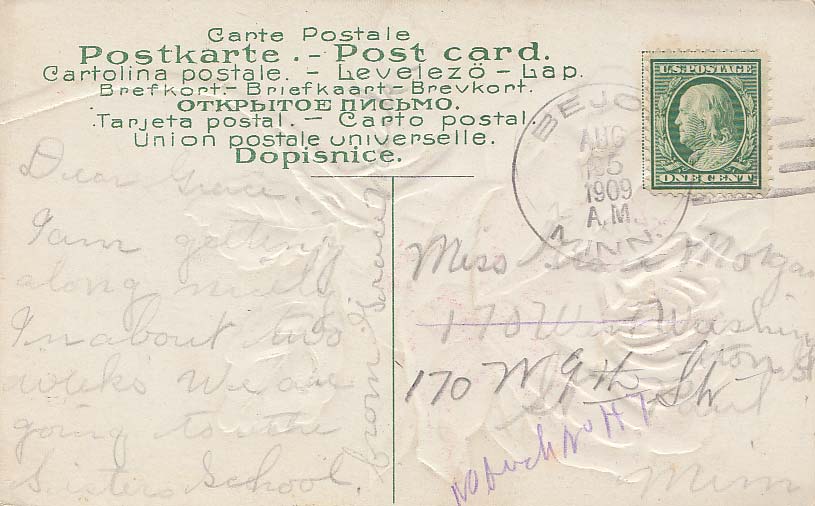 Carte Postale
Postkarte. - Post card.
Cartolina postale. - Levelezö - Lap.
Brefkort.- Briefkaart - Brevkort.
ОТКРЫТОЕ ПИСЬМО.
Tarjeta postal. - Carto postal.
Union postale universelle.
Dopisnice.
U.S. POSTAGE
ONE CENT
BEJOU
AUG
1909
A.M.
MINN.
Dear Grace.
I am getting
along nicely
In about two
weeks we are
going to the
Sisters School.
from Grace
Miss Morgan
170 West Washing
ton St
170 W 9th St
St Paul
Minn
No such No